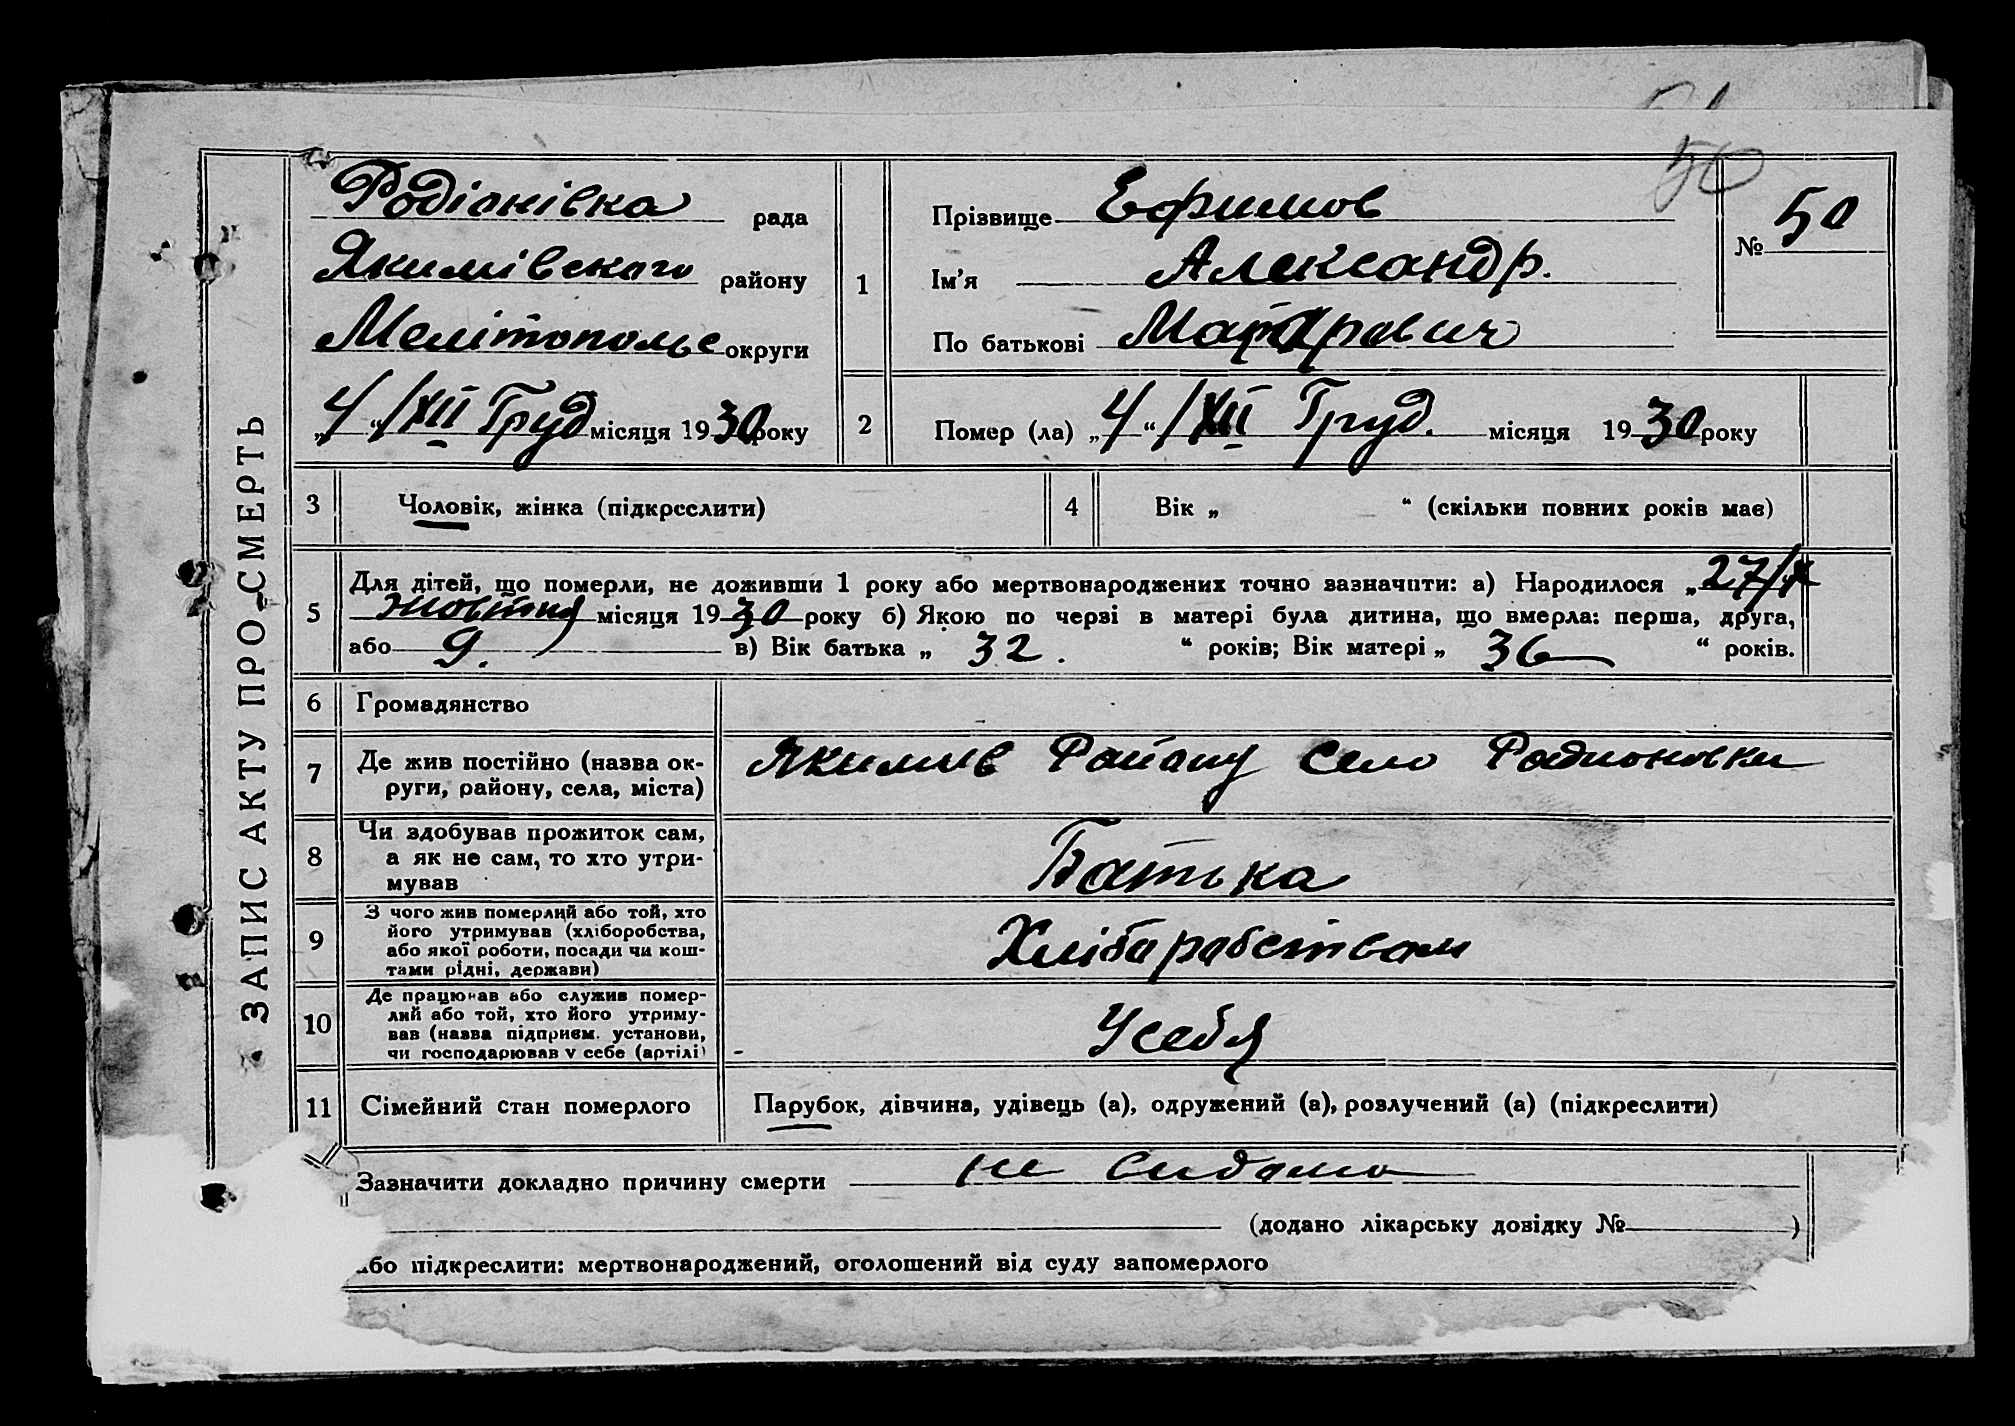 50
ЗАПИС АКТУ ПРО СМЕРТЬ
Родіонівка рада
Якимівского району
Мелітопольс округи
„4“/XII Груд місяця 1930 року
1
Прізвище Ефимов
Ім'я Александр.
По батькові
№ 50
2
Помер (ла) „4“/XII Груд. місяця 1930 року
3 Чоловік, жінка (підкреслити)
4 Вік „ “ (скільки повних років має)
5 Для дітей, що померли, не доживши 1 року або мертвонароджених точно зазначити: а) Народилося „27/X
жовтня місяця 1930 року б) Якою по черзі в матері була дитина, що вмерла: перша, друга,
або 9. в) Вік батька „ 32. “ років; Вік матері „ 36 “ років.
6 Громадянство
7 Де жив постійно (назва ок-
руги, району, села, міста)
Якимив Району село Родионовки
8 Чи здобував прожиток сам,
а як не сам, то хто утри-
мував
Батька
9 З чого жив померлий або той, хто
його утримував (хліборобства,
або якої роботи, посади чи кош-
тами рідні, держави)
Хлібаробством
10 Де працював або служив помер-
лий або той, хто його утриму-
вав (назва підприєм. установи,
чи господарював у себе (артілі)
У себя
11 Сімейний стан померлого
Парубок, дівчина, удівець (а), одружений (а), розлучений (а) (підкреслити)
Зазначити докладно причину смерти не
(додано лікарську довідку № )
або підкреслити: мертвонароджений, оголошений від суду запомерлого